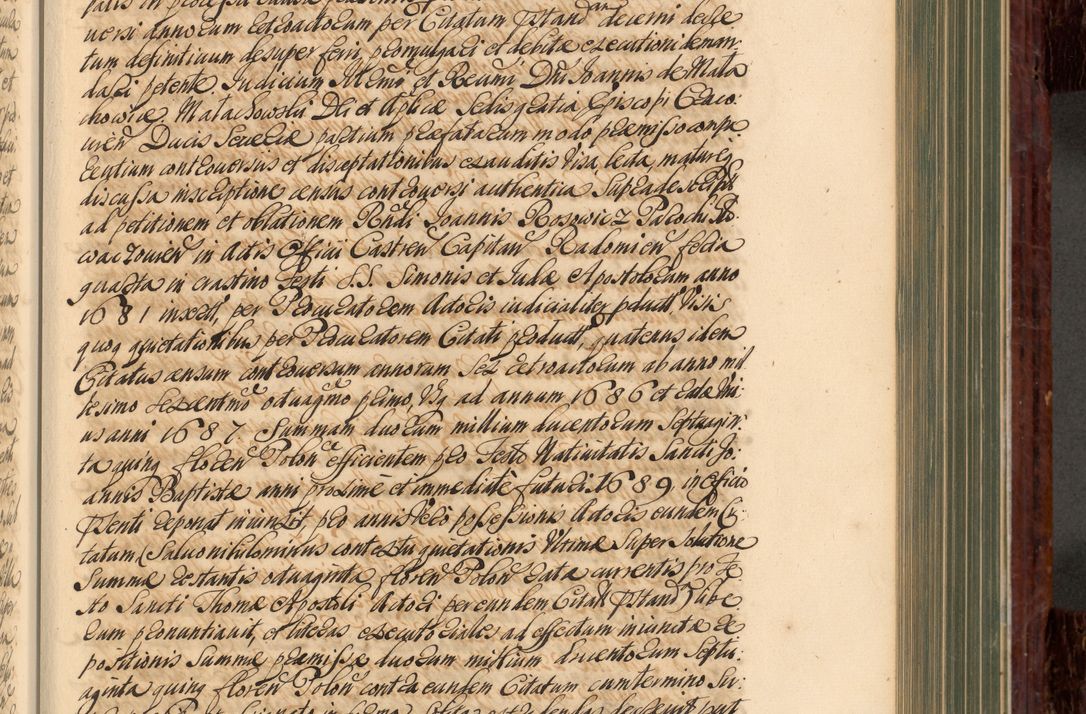 uersi annorum retroactorum per Citatum pstand. decerni decre
tum definitiuum desuper ferri, promulgari et debitæ executioni deman¬
dari petente. Judicium Illmi, et Reumi Dni Joannis de Mała
chowice Małachowski Dei et Aplicæ Sedis gratia Episcopi Craco:
uien Ducis Seueriæ partium præfatarum modo præmisso compa
rentium controuersiis et disceptationibus exauditis Visa, lecta, matureq
discussa inscriptione census controuersi authentica super
ad petitionem et oblationem Rndi Joannis Rosowicz Parochi
in Actis Officii Castren Capitan Radomien feria
quarta in crastino Festi S.S. Simonis et Judæ Apostolorum anno
1681 per Procuratorem Actoris iudicialiter product, Visis
quoq quietationibus per Procuratorem Citati product, quatenus idem
Citatus censum controuersum annorum sex retroactorum ab anno mil
lesimo sexcentmo octuagmo primo, Vsq ad annum 1686 et ratæ Vni
us anni 1687 Summam duorum millium ducentorum Septuagin
ta quinq floren Polon efficientem pro Festo Natiuitatis Sancti Jo:
annis Baptistæ anni proxime et immediate futuri 1689 in officio
psenti reponat iniunxit, pro annis vero possessionis Actoris eundem Ci¬
tatum (Saluo nihilominus quietationis Vltimæ super Solutione
Summæ restantis octuaginta floren Polon rata currentis pro Fe
sto Sancti Thomæ Apostoli Actori per eundem Citat pstand) libe
rum pronuntiauit, et literas executoriales ad effectum iniunctæ re
positionis Summæ præmissæ duorum millium ducentorum Septu:
aginta quinq floren Polon contra eundem Citatum cum termino